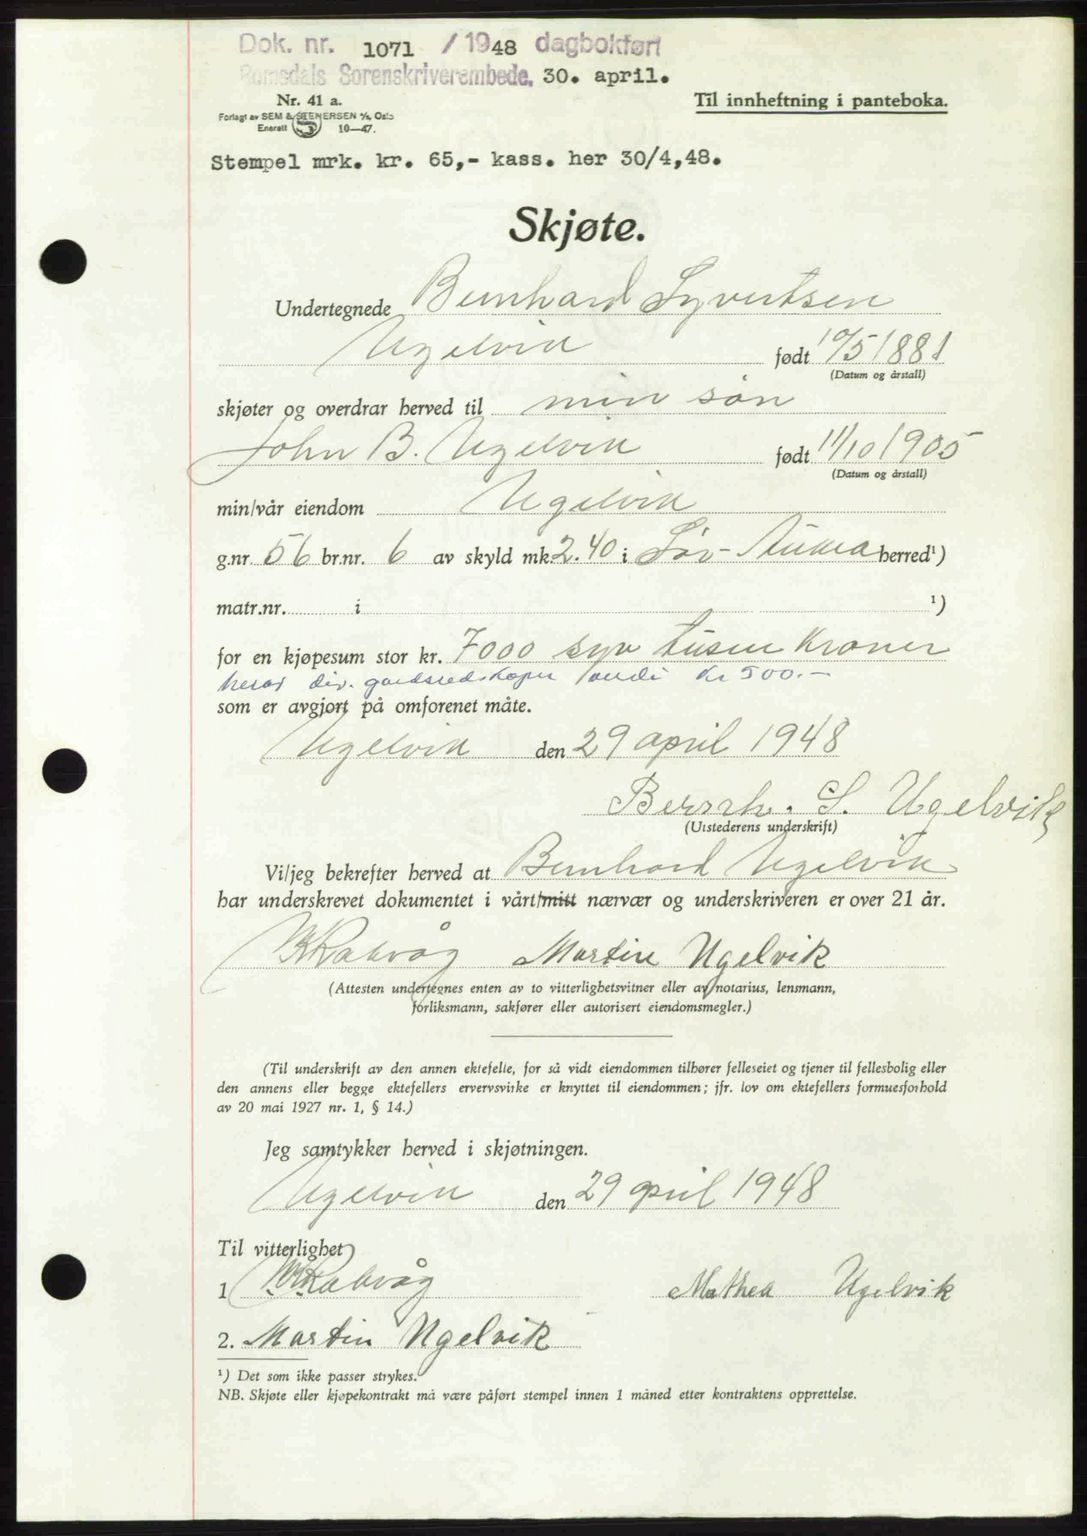 Dok. nr. 1071 / 1948 dagbokført
Romsdals Sorenskriverembede, 30. april.
Nr. 41 a.
Til innheftning i panteboka.
Forlagt av SEM & STENERSEN A/S, Oslo
Enerett 10—47.
Stempel mrk. kr. 65,- kass. her 30/4,48.
Skjøte.
Undertegnede Bernhard Syvertsen
Ugelvik født 10/5 1881
(Datum og årstall)
skjøter og overdrar herved til min søn
John B. Ugelvik født 11/10 1905
(Datum og årstall)
min/vår eiendom Ugelvik
g.nr. 56 br.nr. 6 av skyld mk. 2.40 i Sør-Aukra herred¹)
matr.nr. i ¹)
for en kjøpesum stor kr. 7000 syv tusen Kroner
herav div. gaardsredskaper verdi Kr 500.-
som er avgjort på omforenet måte.
Ugelvik den 29 april 1948
Bernh. S. Ugelvik
(Utstederens underskrift)
Vi/jeg bekrefter herved at Bernhard Ugelvik
har underskrevet dokumentet i vårt/mitt nærvær og underskriveren er over 21 år.
Rakvåg Martin Ugelvik
(Attesten undertegnes enten av to vitterlighetsvitner eller av notarius, lensmann,
forliksmann, sakfører eller autorisert eiendomsmegler.)
(Til underskrift av den annen ektefelle, for så vidt eiendommen tilhører felleseiet og tjener til fellesbolig eller
den annens eller begge ektefellers ervervsvirke er knyttet til eiendommen; jfr. lov om ektefellers formuesforhold
av 20 mai 1927 nr. 1, § 14.)
Jeg samtykker herved i skjøtningen.
Ugelvik den 29 april 1948
Til vitterlighet
1 Rakvåg Mathea Ugelvik
2. Martin Ugelvik
¹) Det som ikke passer strykes.
NB. Skjøte eller kjøpekontrakt må være påført stempel innen 1 måned etter kontraktens opprettelse.